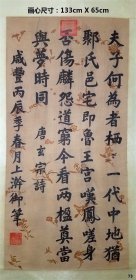 画心尺寸：133cm X 65cm
夫子何為者栖一代中地猶
鄹氏邑宅即魯王宮嘆鳳嗟身
否傷麟怨道窮今看兩楹奠當
與夢時同 唐玄宗詩
咸豐丙辰季春月上澣御筆